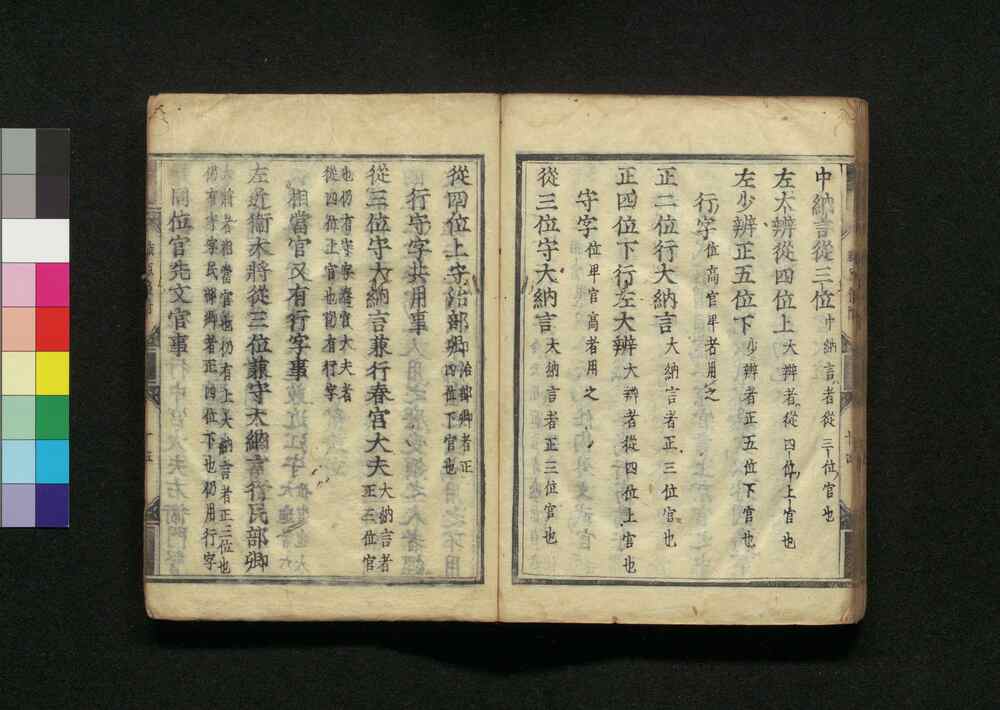 中納言從三位 中納言者從三位官也
左大辨從四位上 大辨者從四位上官也
左少辨正五位下 少辨者正五位下官也
行字 位高官卑者用之
正二位行大納言 大納言者正三位官也
正四位下行左大辨 大辨者從四位上官也
守字 位卑官高者用之
從三位守大納言 大納言者正三位官也
從四位上守治部卿 治部卿者正四位下官也
行守字共用事
從三位守大納言兼行春宮大夫 大納言者正三位官
也仍有守字春宮大夫者
從四位上官也仍有行字
相當官又有行字事
左近衛大將從三位兼守大納言行民部卿
大將者相當官也仍有上大納言者正三位也
仍有守字民部卿者正四位下也仍用行字
同位官先文官事